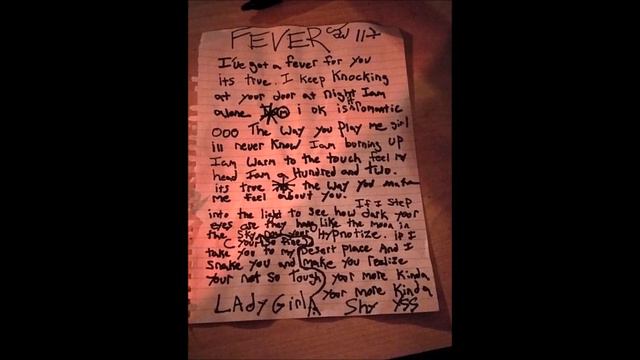 FEVER
I've got a fever for you
its true. I keep Knocking
at your door at Night Iam
alone i ok is it Romantic
OOO The Way you Play me girl
ill never Know Iam borning up
Iam Warm to the touch feel my
head Iam a Hundred and two.
its true the way you make
me feel about you.
If I step
into the light to see how dark your
eyes are they hang Like the moon in
the Sky Hypnotize. if I
your so fine
take you to my Desert Place And I
Snake you and make you realize
Your not so Tough your more Kinda
your more Kinda
LAdy Girl Shy